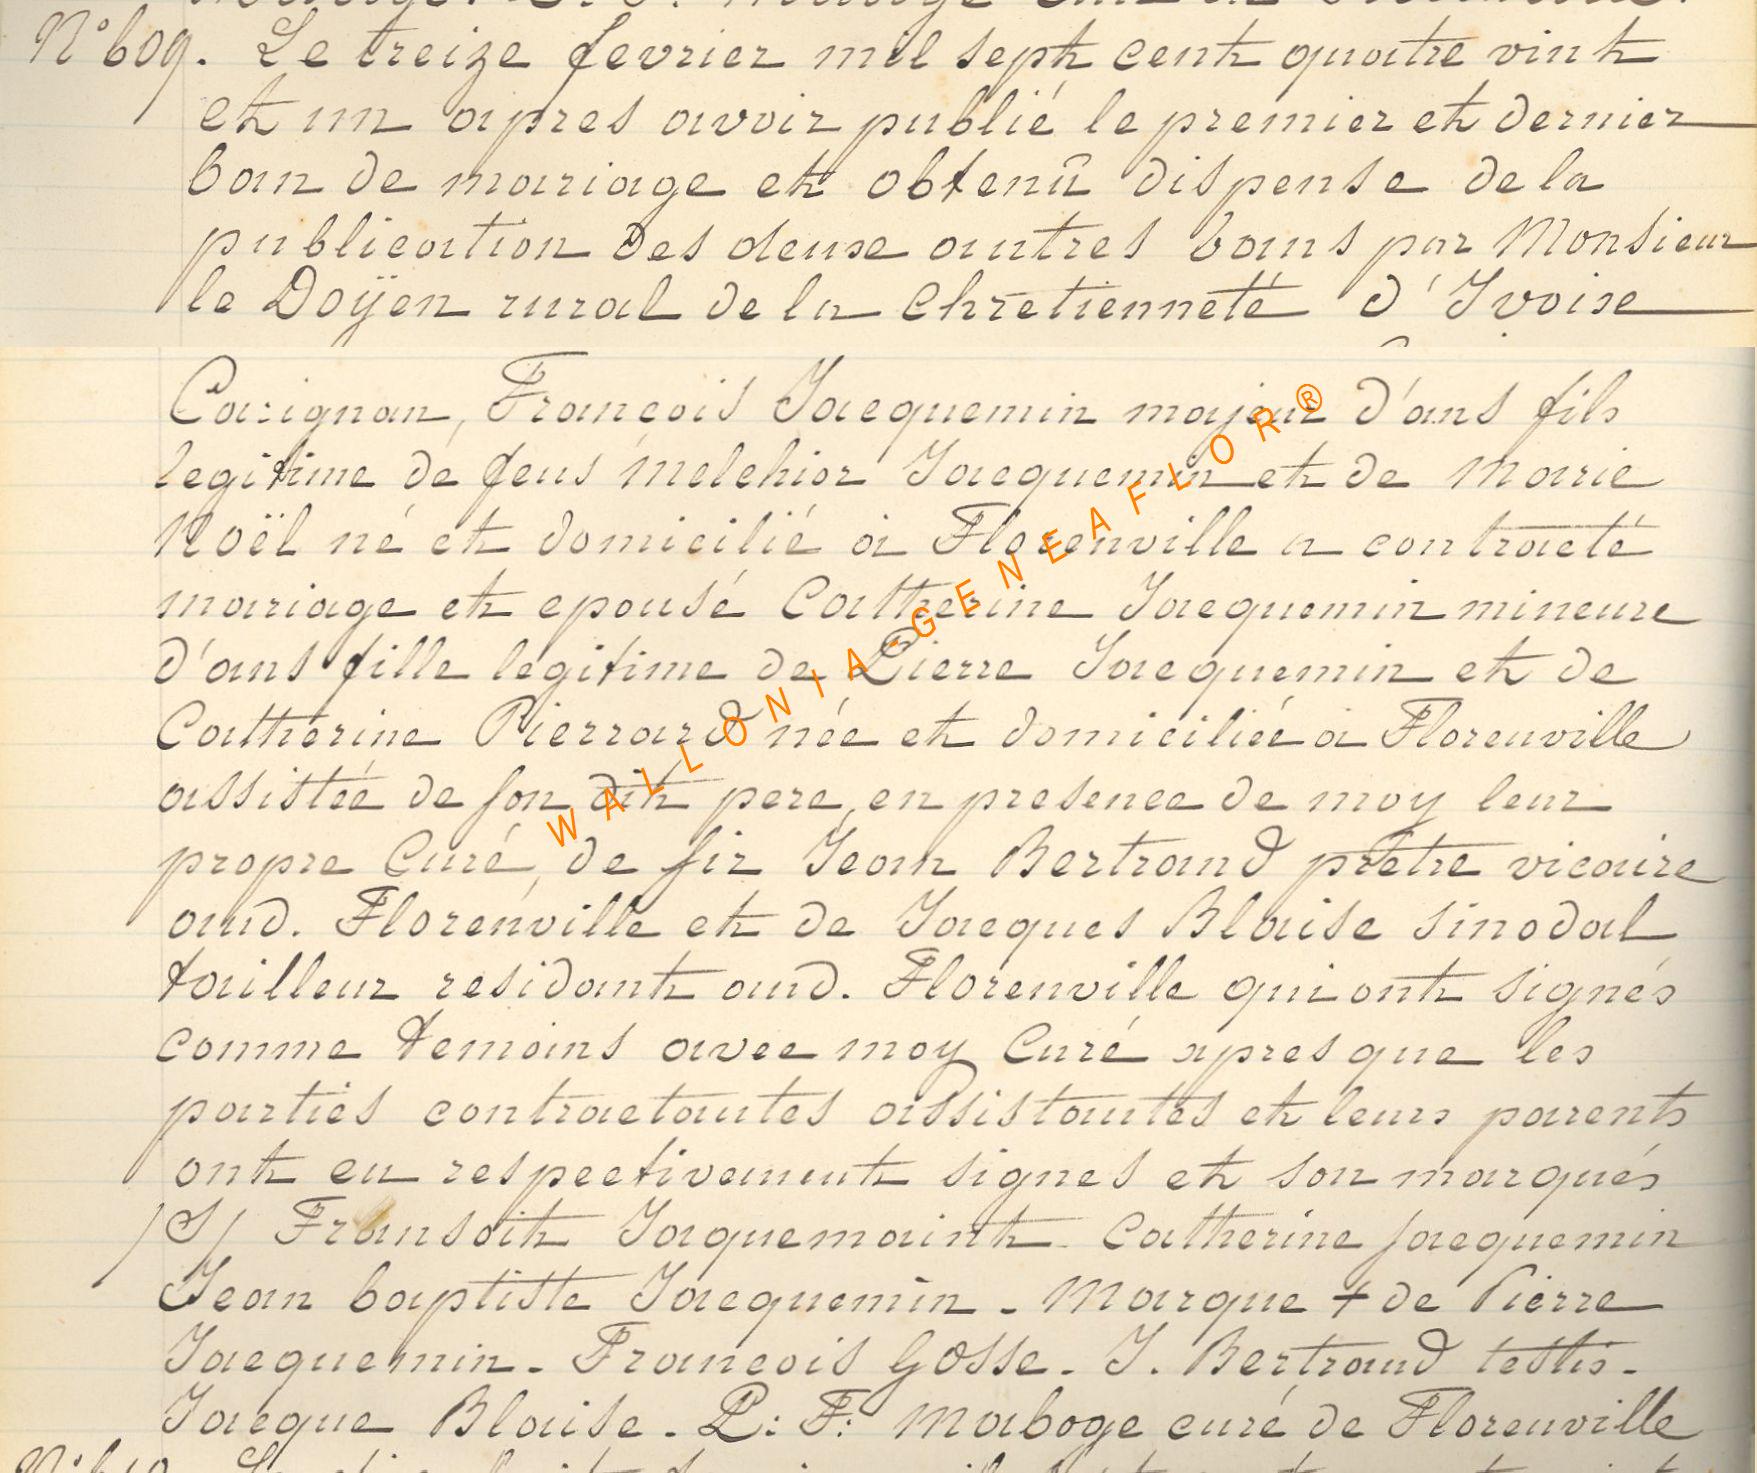 N° 609. Le treize fevrier mil sept cent quatre vint
et un apres avoir publié le premier et dernier
ban de mariage et obtenû dispense de la
publication des deuxe autres bans par Monsieur
le Doÿen rural de la Chretienneté d'Ivoise
Carignan, François Jacquemin majeur d'ans fils
legitime de feus Melchior Jacquemin et de Marie
Noël né et domicilié à Florenville a contracté
mariage et epousé Catherine Jacquemin mineure
d'ans fille legitime de Pierre Jacquemin et de
Catherine Pierrard née et domiciliée a Florenville
assistée de son dit pere, en presence de moy leur
propre Curé, de sir Jean Bertrand prêtre vicaire
aud. Florenville et de Jacques Blaise sinodal
tailleur residant aud. Florenville qui ont signés
comme temoins avec moy Curé apres que les
parties contractantes assistantes et leurs parents
ont eu respectivament signes et son marqués
/S/ Fransoit Jaquemaint - Catherine jacquemin
Jean baptiste Jacquemin - Marque + de Pierre
Jacquemin - Francois Gosse - J. Bertrand testis -
Jacque Blaise - P: F: Maboge curé de Florenville
WALLONIA-GENEAFLOR®